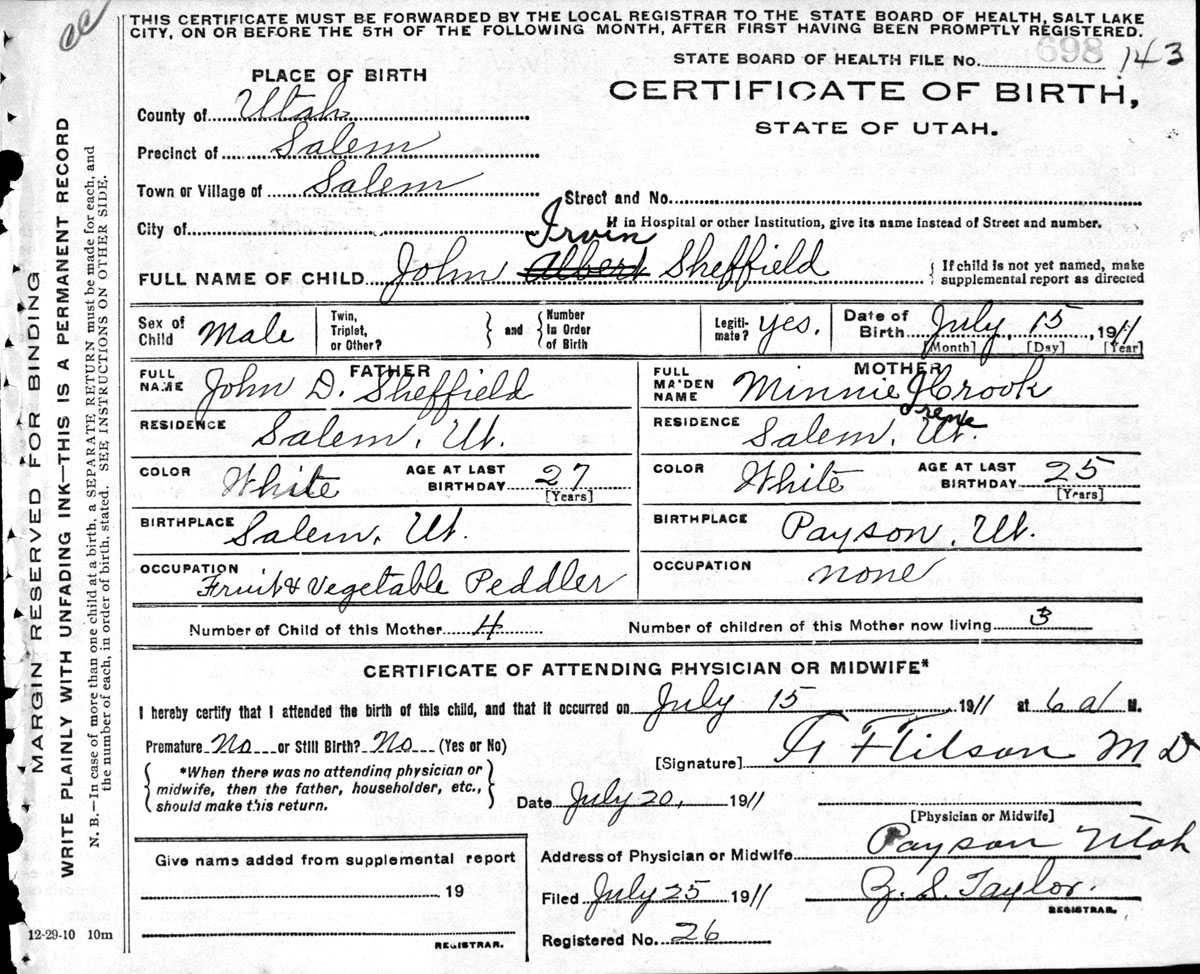 cc
THIS CERTIFICATE MUST BE FORWARDED BY THE LOCAL REGISTRAR TO THE STATE BOARD OF HEALTH, SALT LAKE
CITY, ON OR BEFORE THE 5TH OF THE FOLLOWING MONTH, AFTER FIRST HAVING BEEN PROMPTLY REGISTERED.
STATE BOARD OF HEALTH FILE No. 698 143
PLACE OF BIRTH
CERTIFICATE OF BIRTH,
STATE OF UTAH.
County of Utah
Precinct of Salem
Town or Village of Salem
Street and No.
City of
If in Hospital or other Institution, give its name instead of Street and number.
Irvin
FULL NAME OF CHILD John Albert Sheffield
{ If child is not yet named, make
supplemental report as directed
Sex of Child Male
Twin, Triplet, or Other?
} and {
Number In Order of Birth
Legiti-mate? yes.
Date of Birth July 15, 1911
[Month] [Day] [Year]
FATHER
FULL NAME John D. Sheffield
RESIDENCE Salem, Ut.
COLOR White
AGE AT LAST BIRTHDAY 27
[Years]
BIRTHPLACE Salem, Ut.
OCCUPATION Fruit & Vegetable Peddler
MOTHER
FULL MAIDEN NAME Minnie I Crook
Irene
RESIDENCE Salem, Ut.
COLOR White
AGE AT LAST BIRTHDAY 25
[Years]
BIRTHPLACE Payson, Ut.
OCCUPATION none
Number of Child of this Mother 4
Number of children of this Mother now living 3
CERTIFICATE OF ATTENDING PHYSICIAN OR MIDWIFE*
I hereby certify that I attended the birth of this child, and that it occurred on July 15 1911 at 6 a M.
Premature No or Still Birth? No (Yes or No)
{ *When there was no attending physician or }
midwife, then the father, householder, etc.,
should make this return.
[Signature] M D
Date July 20, 1911
[Physician or Midwife]
Address of Physician or Midwife Payson Utah
Filed July 25 1911 Z. S. Taylor.
REGISTRAR.
Registered No. 26
Give name added from supplemental report
19
REGISTRAR.
12-29-10 10m
MARGIN RESERVED FOR BINDING
WRITE PLAINLY WITH UNFADING INK—THIS IS A PERMANENT RECORD
N. B.—In case of more than one child at a birth, a SEPARATE RETURN must be made for each, and
the number of each, in order of birth, stated. SEE INSTRUCTIONS ON OTHER SIDE.